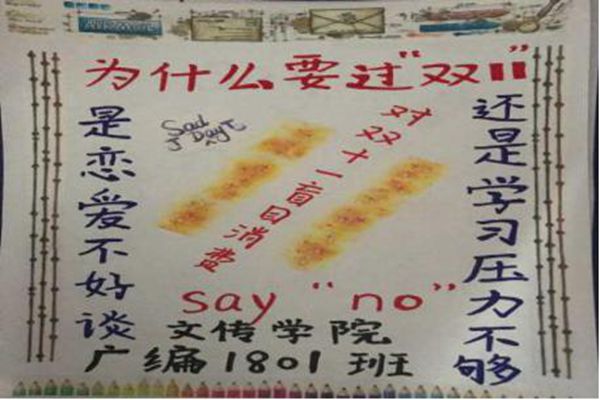 为什么要过“双11”
是恋爱不好谈
还是学习压力不够
Sad
Day
对双十一盲目消费
say “no”
文传学院
广编1801班